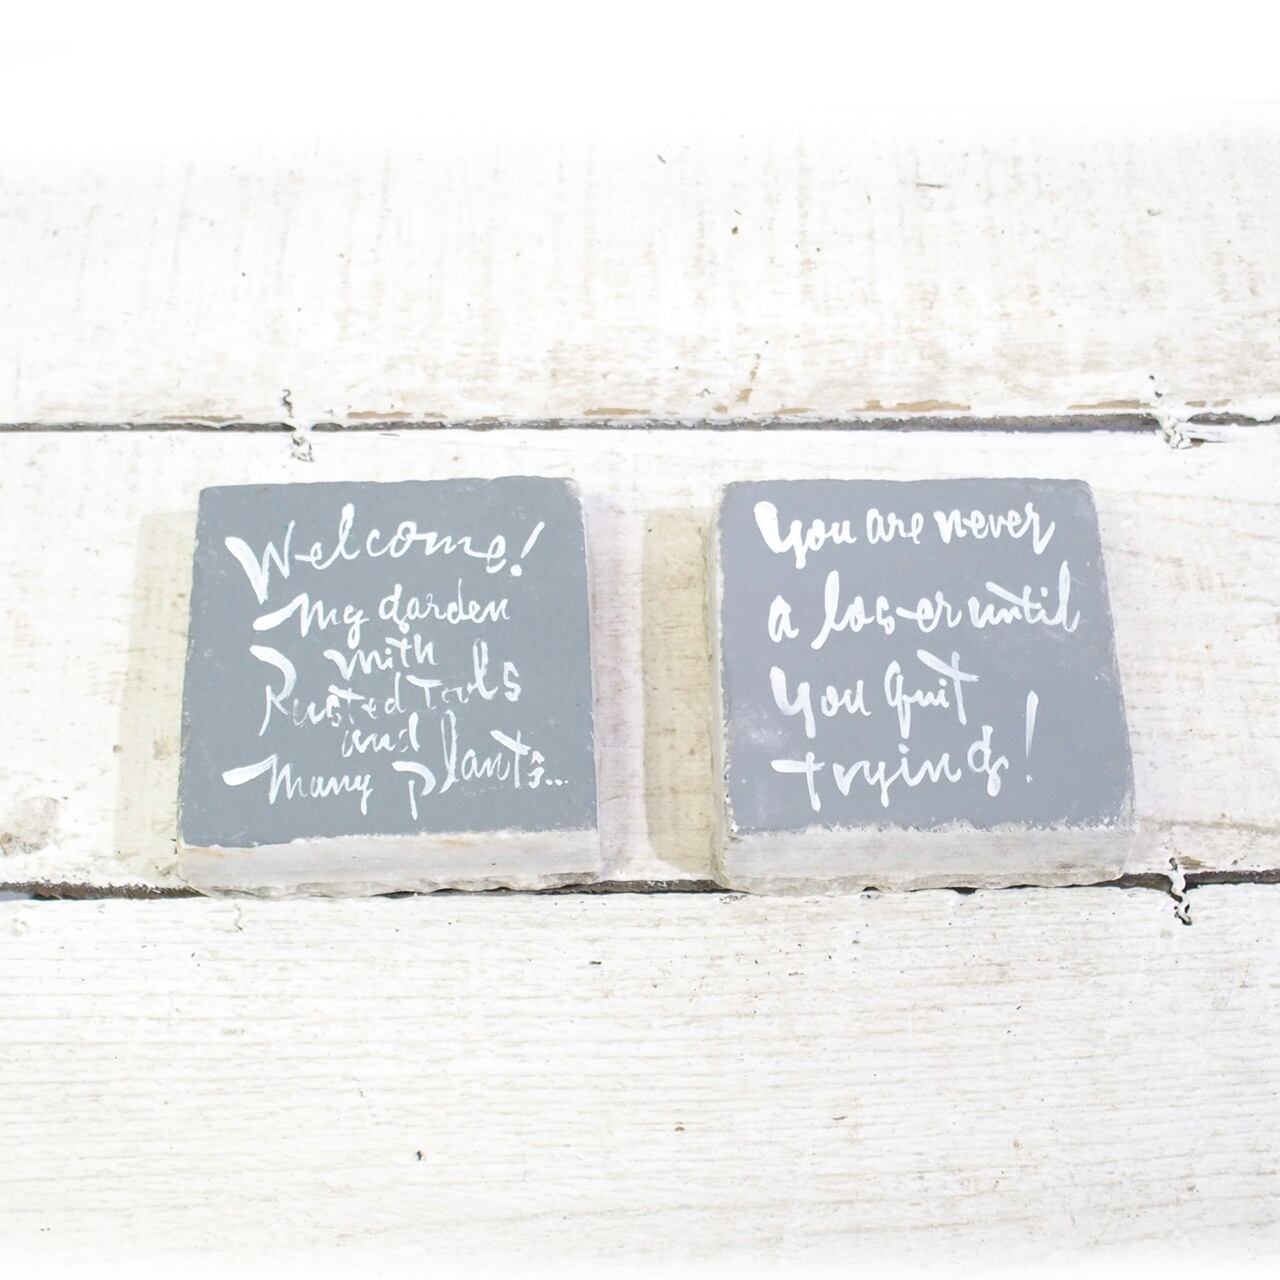 Welcome!
My garden
with
Rusted Tools
and
Many Plants...
You are never
a loser until
You Quit
trying!